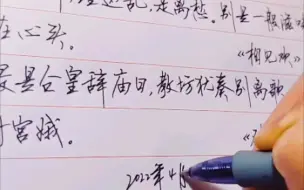 乱,是离愁。别是一般滋味
在心头。
《相见欢》
最是仓皇辞庙日,教坊犹奏别离歌
宫娥。
2022年4月